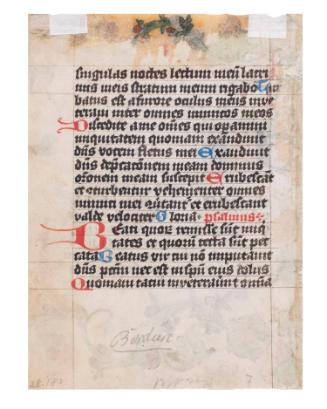 singulas noctes lectum meū lacri
mis meis stratum meum rigabo Tur
batus est a furore oculus meus inve
teravi inter omnes inimicos meos
Discedite a me omēs qui opamini
iniquitatem quoniam exaudivit
dn̄s vocem fletus mei Exaudivit
dn̄s dep̄cationem meam dominus
or̄onem meam suscepit Erubescāt
et conturbentur vehementer omnes
inimici mei cōvtant̄ et erubescant
valde velociter Gloria psalmus
Beati quor̄ remisse sūt iniq
tates et quorū tecta sūt pec
cata Beatus vir cui nō imputavit
dn̄s pctm̄ nec est in sp̄u eius dolus
Quoniam tacui inveteraverūt